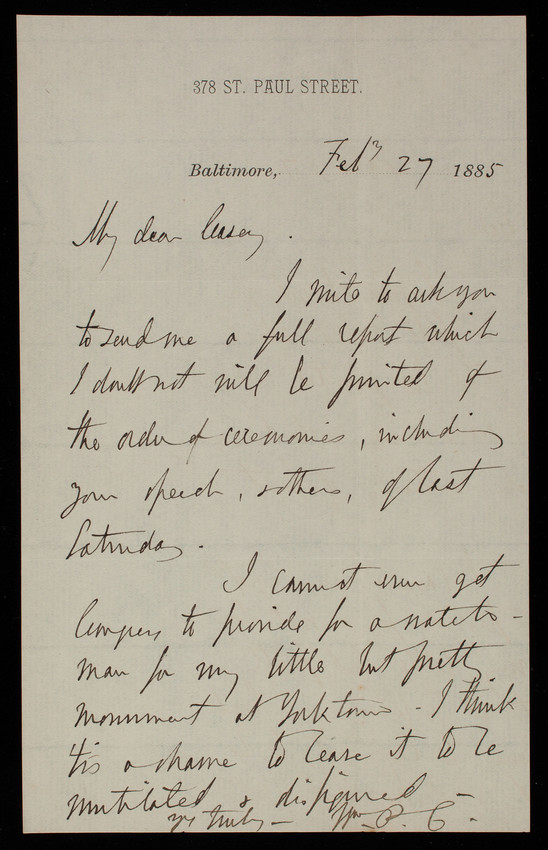 378 ST. PAUL STREET.
Baltimore, Feby 27 1885
My dear Casey.
I write to ask you
to send me a full report which
I doubt not will be printed of
the order of ceremonies, including
your speech, & others, of last
Saturday.
I cannot even get
Congress to provide for a watch-
man for my little but pretty
monument at Yorktown - I think
'tis a shame to leave it to be
mutilated & disfigured -
yrs truly - Wm. P. C.